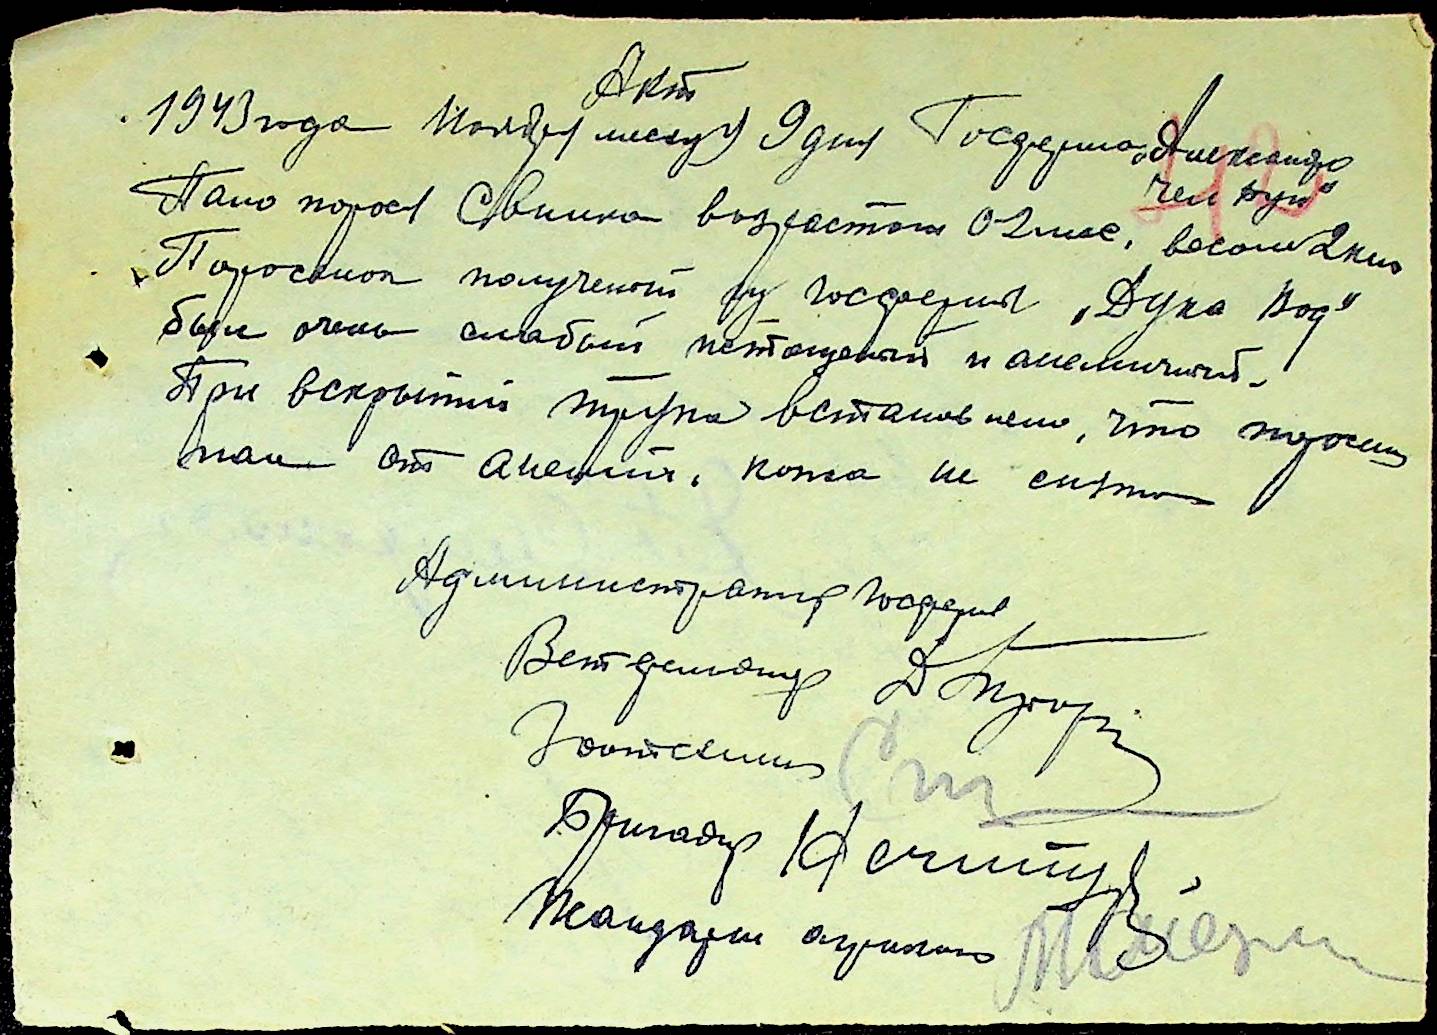 Акт
1943 года Ноября месяця 9 дня Госферма „Александро
чел бун"
Пало порося Свинка возрастом 0-2 мес, весом 2 кил
Поросенок полученый из госферми „Дука Вод"
был очень слабый истощеный и анемичный.
При вскрытии трупа встановлено, что поросен
пал от анемии, кожа не снята
Администратор госферми
Ветфельдшер
Зоотехник
Бригадир
Жандарм агрикол